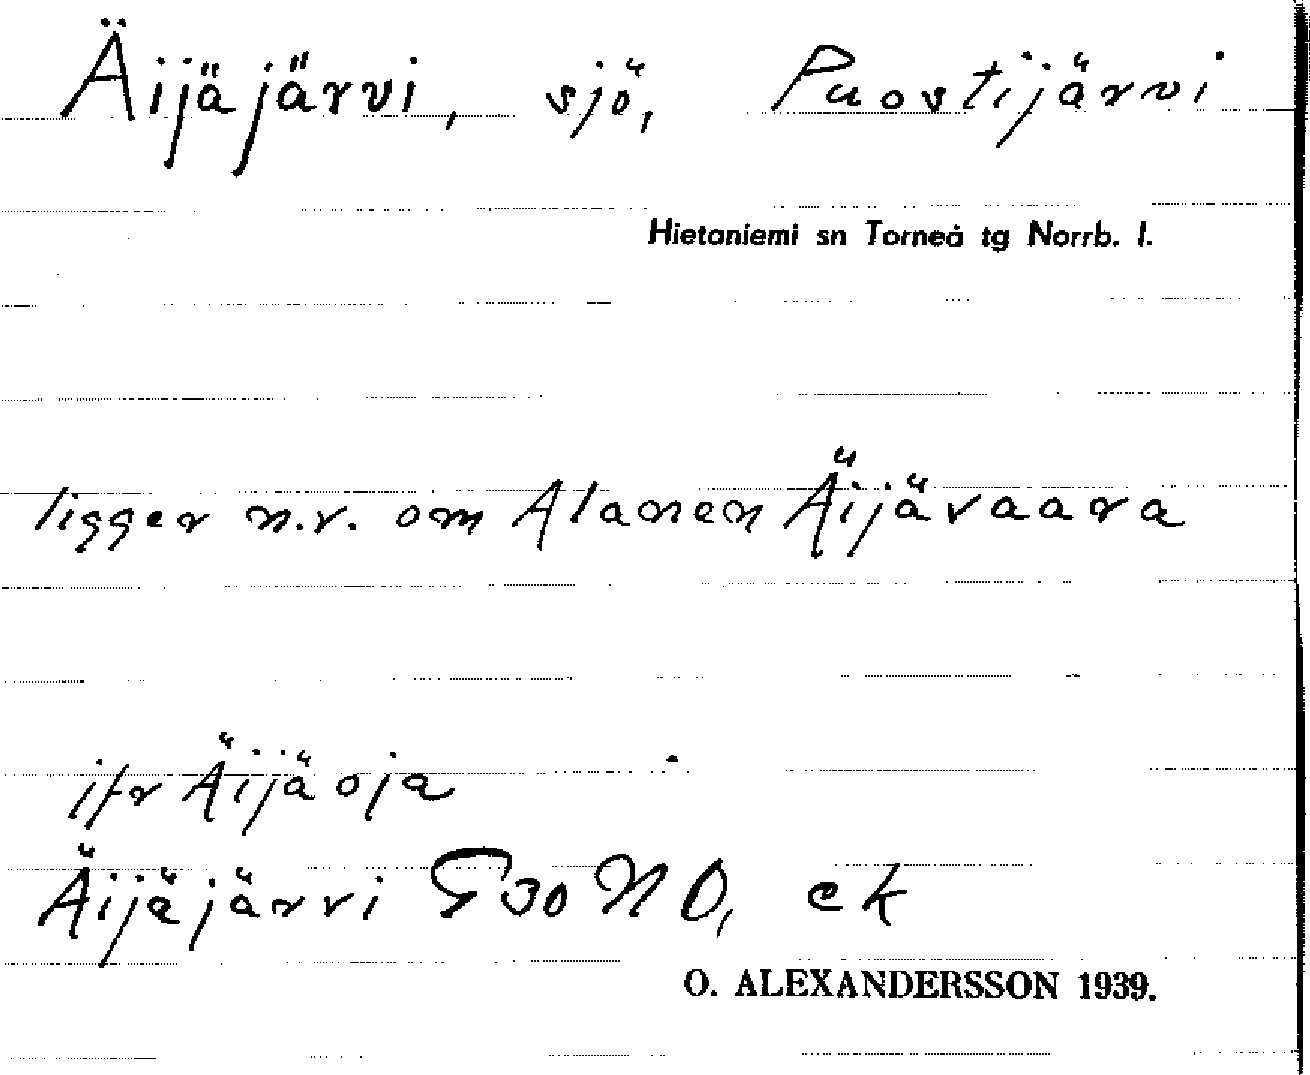 Äijäjärvi, sjö, Puostijärvi
Hietaniemi sn Torneå tg Norrb. l.
ligger n.v. om Alanen Äijävaara
jfr Äijäoja
Äijäjärvi G30 NO, ek
O. ALEXANDERSSON 1939.